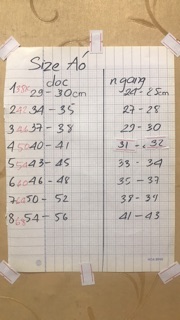 Size Áo
dọc ngang
1 29 - 30cm 24 - 25cm
2 34 - 35 27 - 28
3 37 - 38 29 - 30
4 40 - 41 31 - 32
5 43 - 45 33 - 34
6 46 - 48 35 - 37
7 50 - 52 38 - 39
8 54 - 56 41 - 43